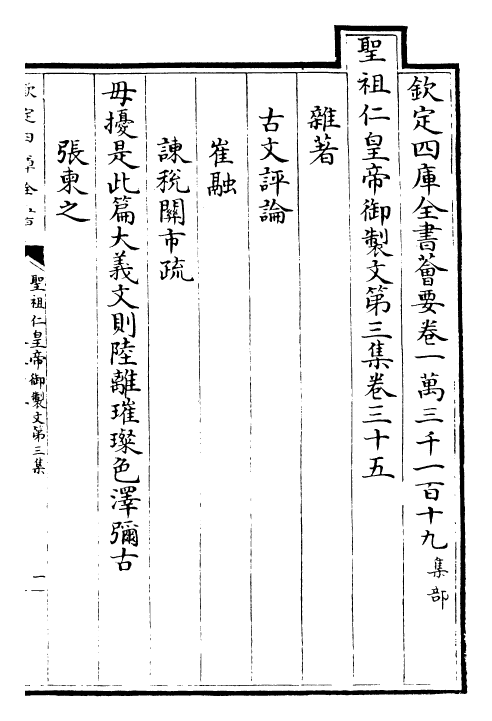 欽定四庫全書薈要卷一萬三千一百十九集部
聖祖仁皇帝御製文第三集卷三十五
雜著
古文評論
崔融
諫稅關市疏
毋擾是此篇大義文則陸離璀璨色澤彌古
張柬之
欽定四庫全書
聖祖仁皇帝御製文第三集
一